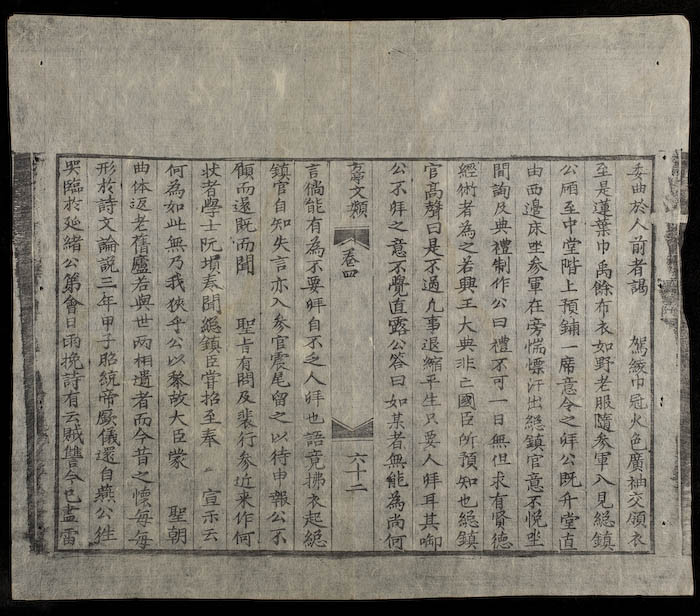 委曲於人前者謁　駕緩巾冠火色廣袖交領衣
至是蓮葉巾禹餘布衣如野老服隨參軍入見緫鎮
公廨至中堂階上預鋪一席意令之拜公既升堂直
由西邊床坐參軍在旁惴慄汗出緫鎮官意不悅坐
間詢及典禮制作公曰禮不可一日無但求有賢德
經術者為之若興王大典非亡國臣所預知也緫鎮
官高聲曰是不過凡事退縮平生只要人拜耳其啣
公不拜之意不覺直露公答曰如某者無能為尚何
文類　卷四　六十二
言倘能有為不要拜自不乏人拜也語竟拂衣起緫
鎮官自知失言亦入參官震尾留之以待申報公不
顧而還既而聞　聖旨有問及裴行參近来作何
狀者學士阮塤奏聞緫鎮臣嘗招至奉　宣示云
何為如此無乃我狹乎公以黎故大臣蒙　聖朝
曲体返老舊廬若與世两相遺者而今昔之懷每每
形於詩文論說三年甲子昭統帝厥儀還自燕公徃
哭臨於延緒公第會日雨挽詩有云賊讐今已盡雷